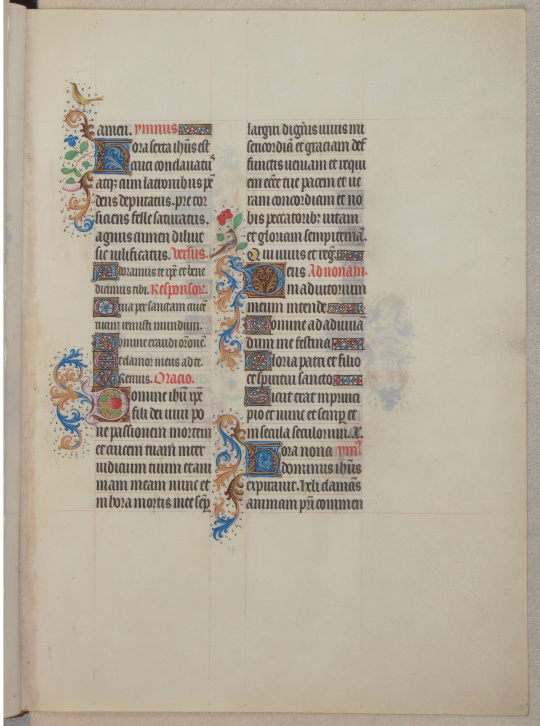 amen. ymnus
Hora sexta ihus est
cruci conclavatus
atq; cum latronibus pe
dens deputatus. pre tor
sitiens felle saturatus.
agnus crimen diluit
sic iustificatus. Versus.
Adoramus te xpe et bene
dicimus tibi. Responsor.
Quia per sanctam cruce
tuam redemisti mundum.
Domine exaudi orõnem.
Et clamor meus ad te.
Oremus. Oracio.
Domine ihu xpe
fili dei vivi po
ne passionem mortem
et crucem tuam inter
iudicium tuum et ani
mam meam nunc et
in hora mortis mee Et
largiri digneris vivis mi
sericordiã et graciam def
functis veniam et requi
em ecce tue pacem et ve
ram concordiam et no
bis peccatorib; vitam
et gloriam sempiternã.
Qui vivis et reg.
Deus Ad nonam.
in adiutorium
meum intende
Domine ad adiuvã
dum me festina
Gloria patri et filio
et spiritui sancto
Sicut erat in princi
pio et nunc et semp et
in secula seculorum. a.
Hora nona ym.
dominus ihus
expiravit. heli clamãs
animam pri commen